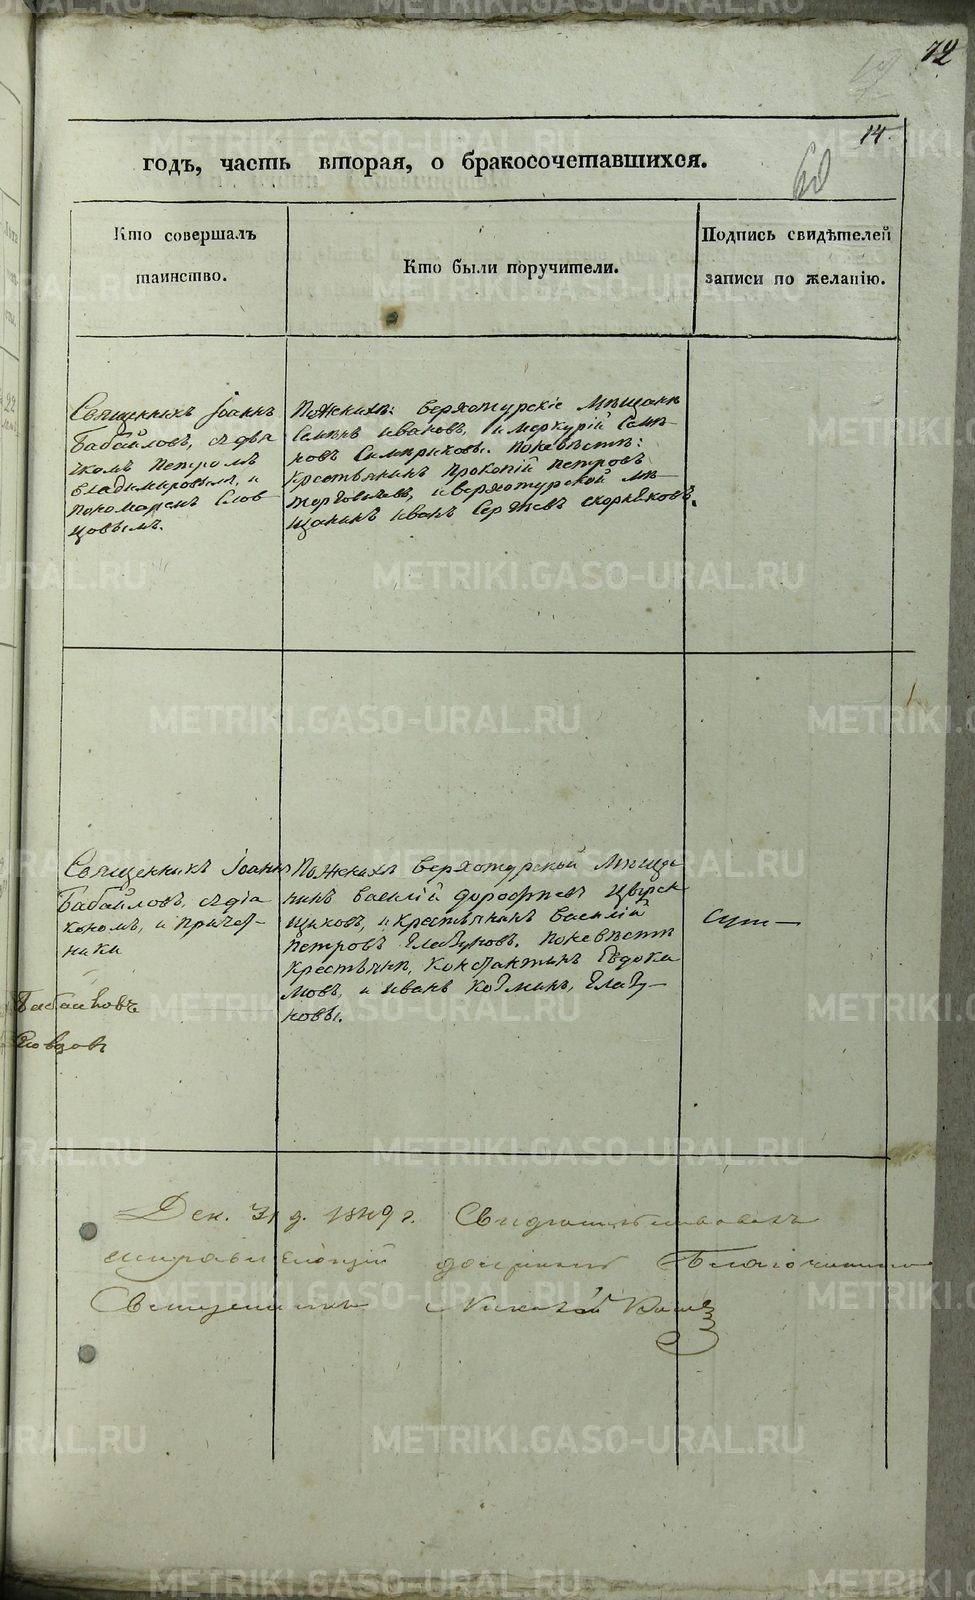 72
14.
60
годъ, часть вторая, о бракосочетавшихся.
Кто совершалъ
таинство.
Кто были поручители.
Подпись свидѣтелей
записи по желанію.
Священникъ Іоаннъ
Бабайловъ, съ дья
комъ Петромъ
Владимировымъ, и
пономаремъ Слов
цовымъ.
По женихѣ: верхотурскіе мѣщане
Семенъ Ивановъ, и Меркурій Семе-
новъ . По невѣстѣ:
крестьянинъ Прокопій Петровъ
и верхотурской мѣ-
щанинъ Иванъ Сергѣевъ Скорняковъ.
Священникъ Іоаннъ
Бабайловъ, съ діа
кономъ, и причет-
ники
По женихѣ верхотурской мѣща
нинъ Василій Дорофѣевъ
щиковъ, и крестьянинъ Василій
Петровъ Глазуновъ. По невѣстѣ
крестьяне, Константинъ Евдоки
мовъ, и Иванъ Козминъ, Глазу-
новы.
Дек. 31 д. 1849 г. Свидѣтельствовалъ
исправляющій должность Благочиннаго
Священникъ Николай
METRIKI.GASO-URAL.RU